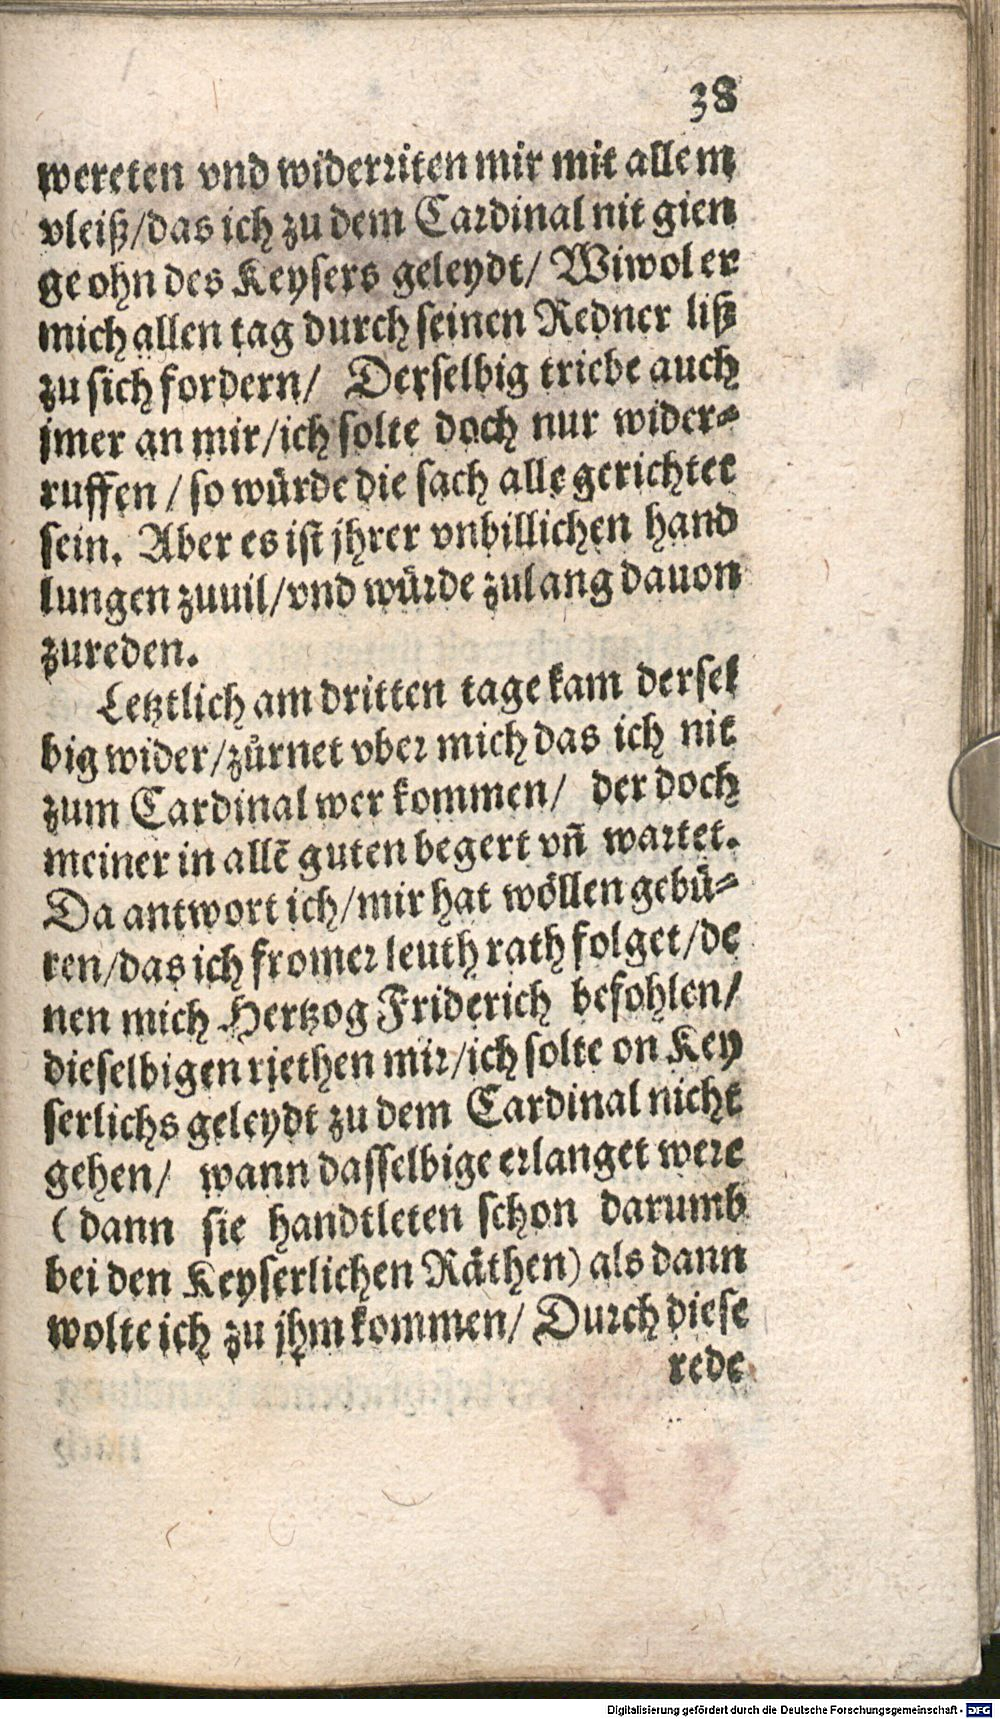 38
wereten vnd widerriten mir mit allem
vleiß/das ich zu dem Cardinal nit gien
ge ohn des Keysers geleydt/ Wiwol er
mich allen tag durch seinen Redner liß
zu sich fordern/ Derselbig triebe auch
jmer an mir/ich solte doch nur wider⸗
ruffen / so würde die sach alle gerichtet
sein. Aber es ist jhrer vnbillichen hand
lungen zuuil/vnd würde zulang dauon
zureden.
Letztlich am dritten tage kam dersel
big wider/zürnet vber mich das ich nit
zum Cardinal wer kommen/ der doch
meiner in allē guten begert vñ wartet.
Da antwort ich/mir hat wöllen gebü⸗
ren/das ich fromer leuth rath folget/de
nen mich Hertzog Friderich befohlen/
dieselbigen riethen mir/ich solte on Key
serlichs geleydt zu dem Cardinal nicht
gehen/ wann dasselbige erlanget were
(dann sie handtleten schon darumb
bei den Keyserlichen Räthen) als dann
wolte ich zu jhm kommen/ Durch diese
rede
Digitalisierung gefördert durch die Deutsche Forschungsgemeinschaft - DFG